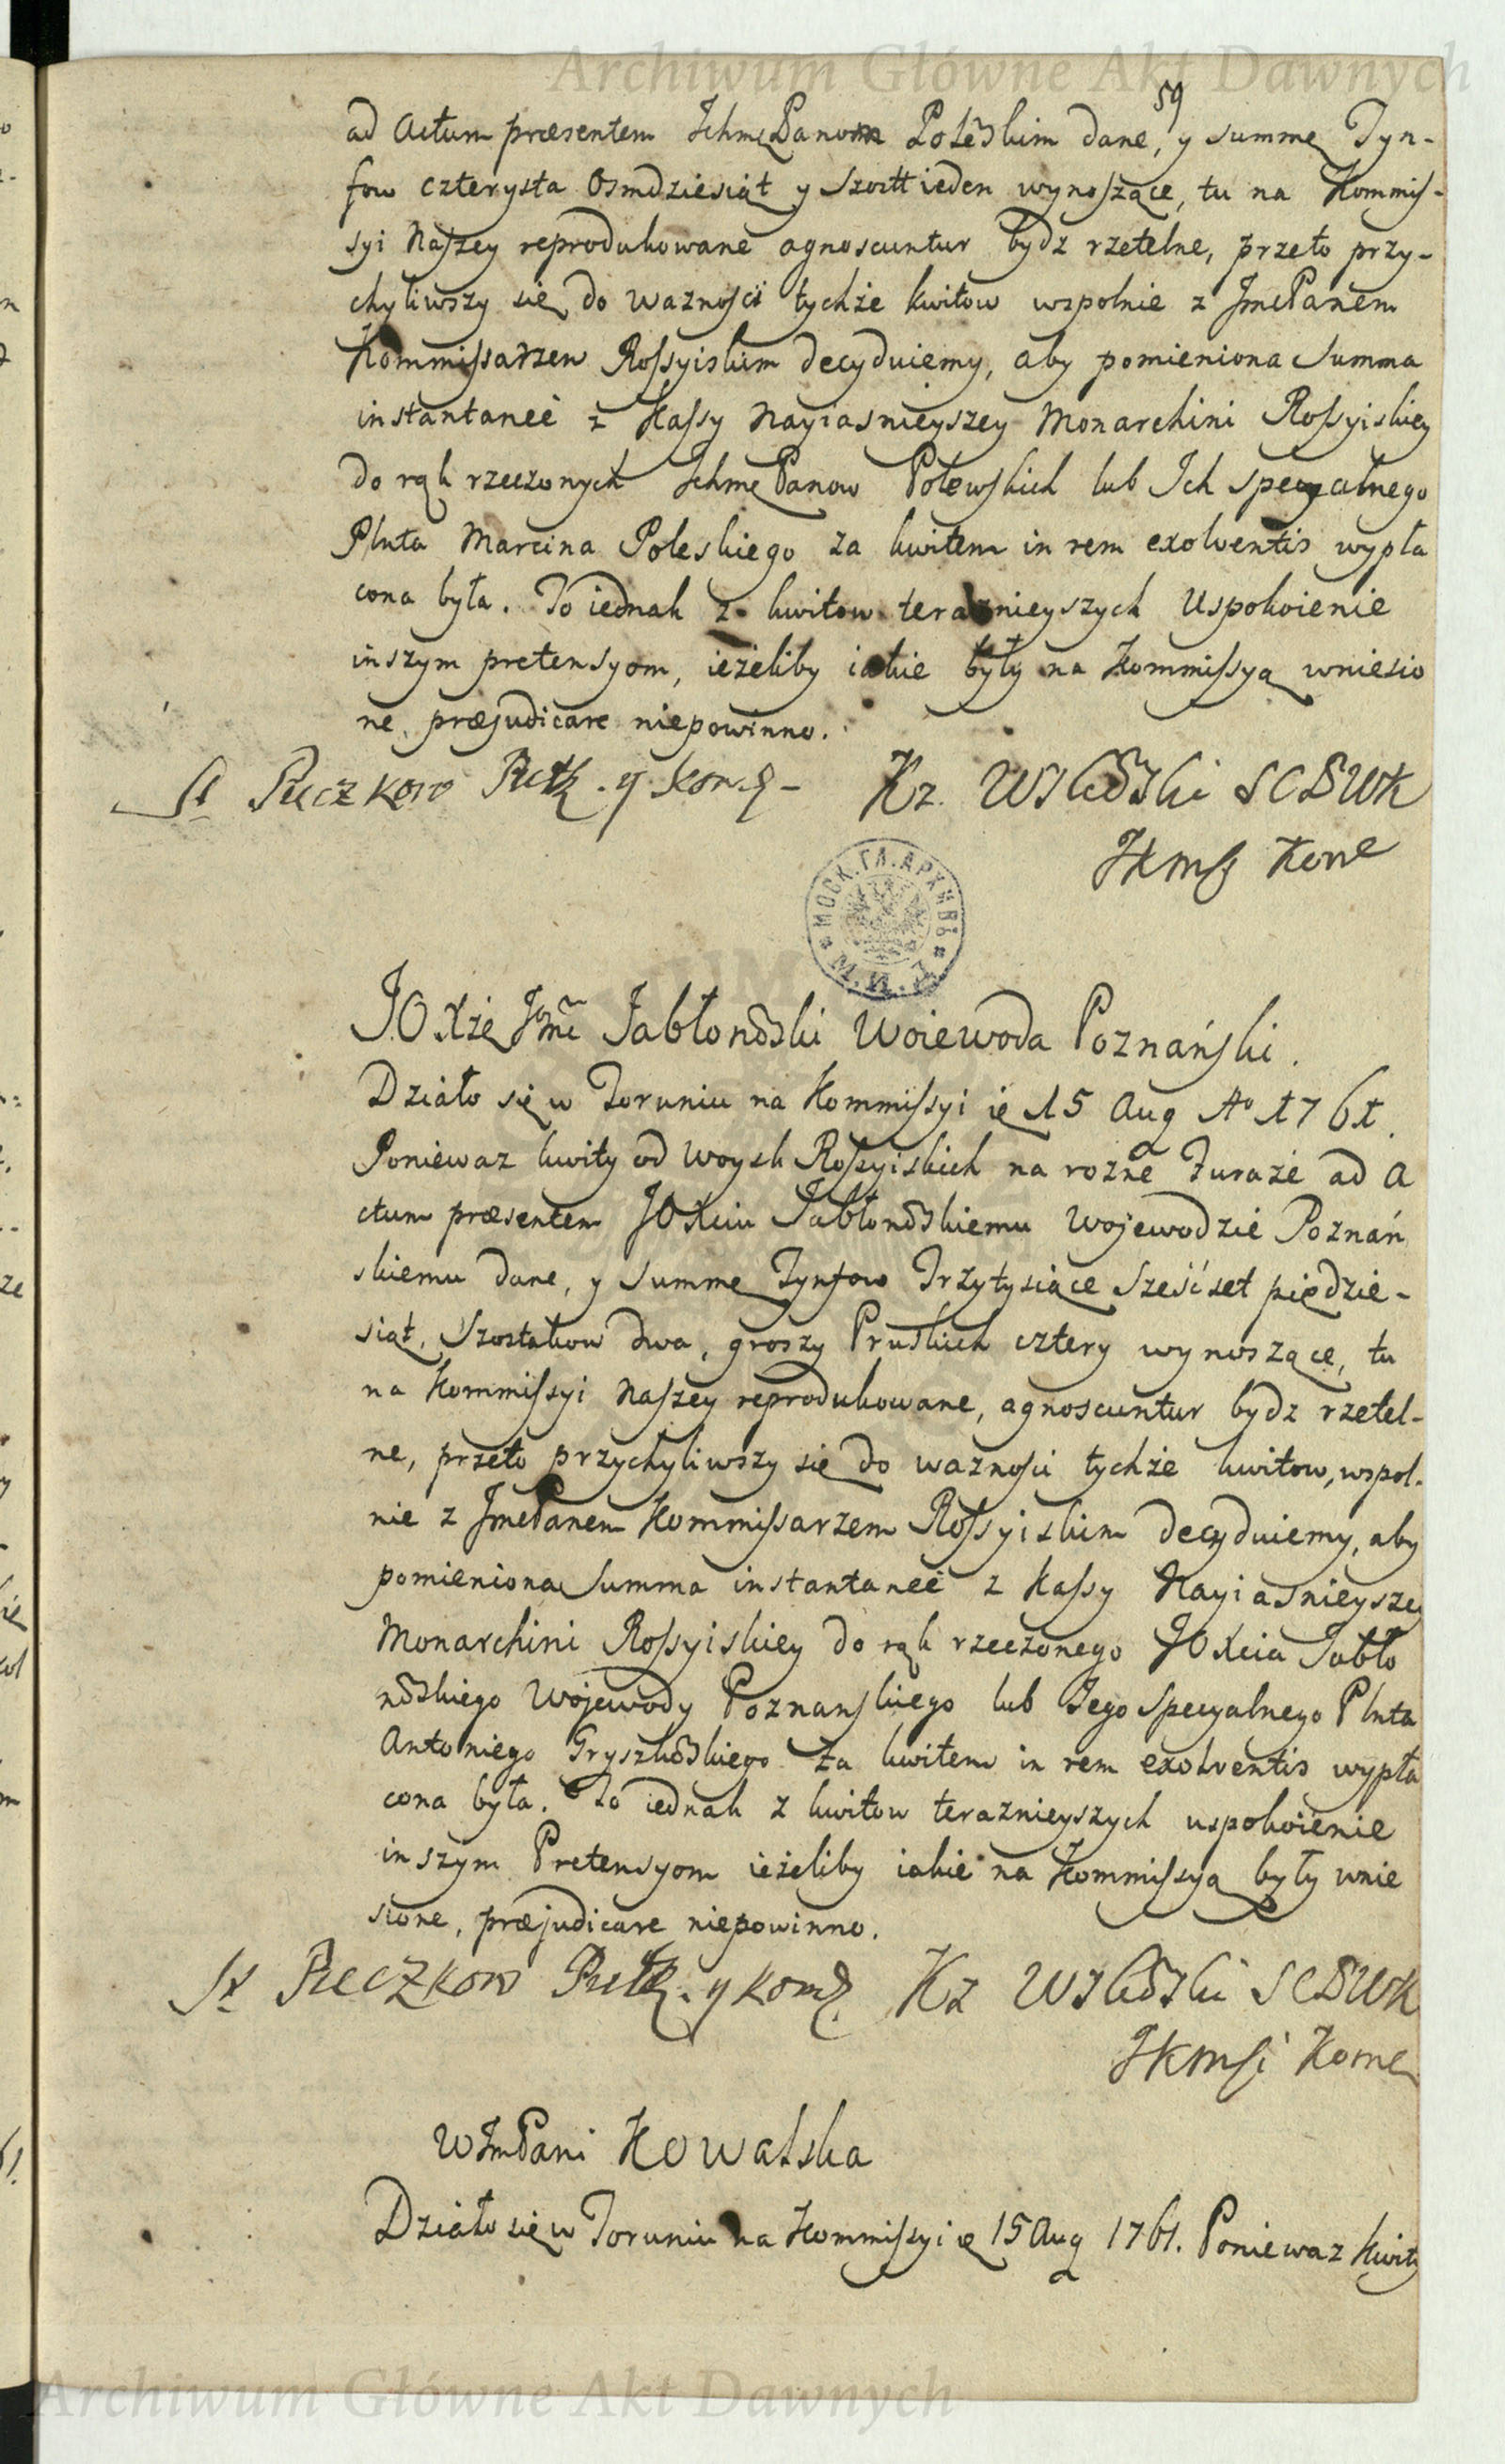 Archiwum Główne Akt Dawnych
59
ad Actum præsentem Ichmć Panom Poleskim dane, y summę Tyn-
fow czterysta Osmdziesiąt y Szost ieden wynoszące, tu na Kommis-
syi Naszey reprodukowane agnoscuntur bydz rzetelne, przeto przy-
chyliwszy się do waznosci tychże kwitow wspolnie z Jmć Panem
Kommissarzem Rossyiskim decyduiemy, aby pomieniona Summa
instantaneè z Kassy Nayiasnieyszey Monarchini Rossyiskiey
do rąk rzeczonych Ichmć Panow Polewskich lub Ich specyalnego
Plnta Marcina Poleskiego za kwitem in rem exolventis wypła
cona była. To iednak z kwitow teraznieyszych Uspokoienie
inszym pretensyom, ieżeliby iakie były na Kommissyą wniesio
ne, præjudicare niepowinno.
St Puczkow Putk. y kom. Kz. SCBWK
JKMsci Kom
МОСК.ГЛ.АРХИВЪ М.И.Д.
JO Xżę Jmć Jabłonoski Woiewoda Poznański.
Działo się w Toruniu na Kommissyi ie 15 Aug Ao 1761.
Poniewaz kwity od Woysk Rossyiskich na rozne Furaże ad A
ctum præsentem JOXciu Jabłonoskiemu Wojewodzie Poznań
skiemu dane, y summę Tynfow Trzytysiące Sześćset pięćdzie-
siąt, Szostakow dwa, groszy Pruskich cztery wynoszące, tu
na Kommissyi Naszey reprodukowane, agnoscuntur bydz rzetel-
ne, przeto przychyliwszy się do waznosci tychże kwitow, wspol-
nie z Jmć Panem Kommissarzem Rossyiskim decyduiemy, aby
pomieniona Summa instantaneè z Kassy Nayiasnieyszey
Monarchini Rossyiskiey do rąk rzeczonego JOXcia Jabło
noskiego Wojewody Poznanskiego lub Jego specyalnego Plnta
Antoniego Gryszkoskiego za kwitem in rem exolventis wypła
cona była. To iednak z kwitow teraznieyszych uspokoienie
inszym Pretensyom ieżeliby iakie na Kommissyą były wnie
sione, præjudicare niepowinno.
St Puczkow Putk. y kom. Kz SCBWK
JKMsci Kom
WJmPani Kowalska
Działo się w Toruniu na Kommissyi ie 15 Aug 1761. Poniewaz kwity
Archiwum Główne Akt Dawnych